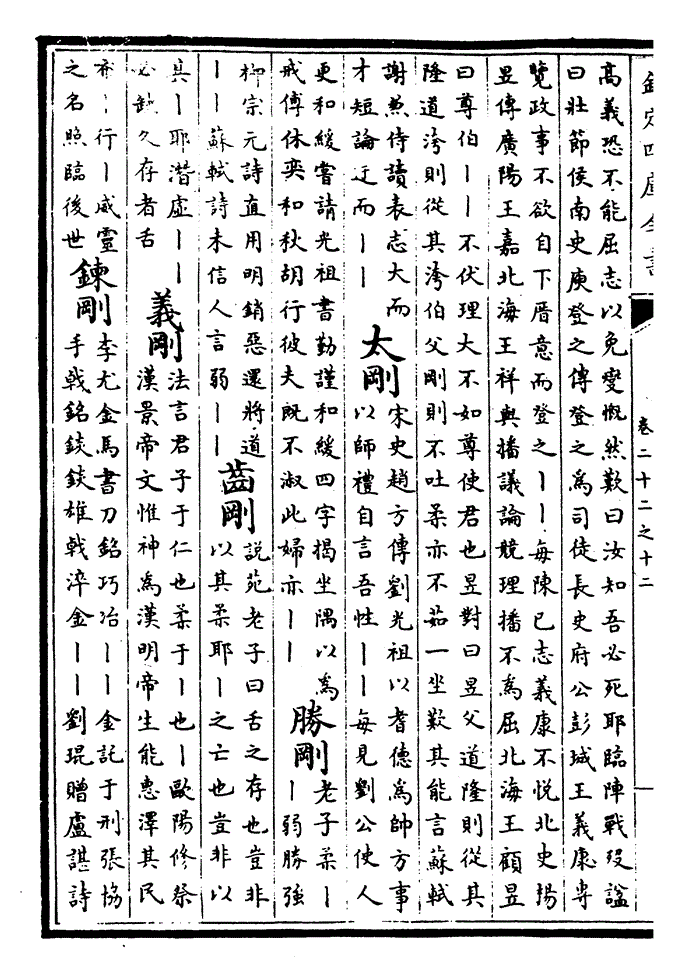 欽定四庫全書
卷二十二之十二
高義恐不能屈志以免變慨然歎曰汝知吾必死耶臨陣戰歿諡
曰壯節侯南史庾登之傳登之為司徒長史府公彭城王義康專
覽政事不欲自下厝意而登之丨丨每陳已志義康不悅北史揚
昱傳廣陽王嘉北海王祥與播議論競理播不為屈北海王顧昱
曰尊伯丨丨不伏理大不如尊使君也昱對曰昱父道隆則從其
隆道洿則從其洿伯父剛則不吐柔亦不茹一坐歎其能言蘇軾
謝兼侍讀表志大而
才短論迂而丨丨
太剛
宋史趙方傳劉光祖以耆德為帥方事
以師禮自言吾性丨丨每見劉公使人
更和緩嘗請光祖書勤謹和緩四字揭坐隅以為
戒傅休奕和秋胡行彼夫既不淑此婦亦丨丨
勝剛
老子柔丨
丨弱勝強
柳宗元詩直用明銷惡還將道
丨丨蘇軾詩未信人言弱丨丨
齒剛
說苑老子曰舌之存也豈非
以其柔耶丨之亡也豈非以
其丨耶潛虛丨丨
必缺久存者舌
義剛
法言君子于仁也柔于丨也丨歐陽修祭
漢景帝文惟神為漢明帝生能惠澤其民
齊丨行丨威靈
之名照臨後世
鍊剛
李尤金馬書刀銘巧冶丨丨金託于刑張協
手戟銘錟錟雄戟淬金丨丨劉琨贈盧諶詩
一